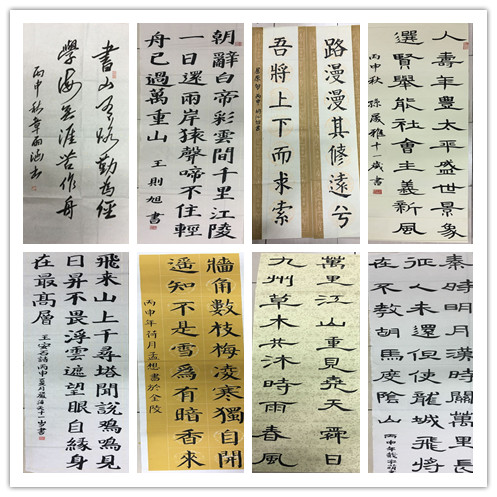 書山有路勤為徑
學海無涯苦作舟
丙申秋章雨涵書
朝辭白帝彩雲間千里江陵
一日還兩岸猿聲啼不住輕
舟已過萬重山 王則旭書
路漫漫其修遠兮
吾將上下而求索
人壽年豊太平盛世景象
選賢舉能社會主義新風
丙申秋 孫晟雅十歲書
飛来山上千尋塔聞說鳴見
日昇不畏浮雲遮望眼自緣身
在最高層 王安石詩丙申夏月
牆角數枝梅凌寒獨自開
遥知不是雪爲有暗香来
丙申年荷月孟想書於金陵
萬里江山重見堯天舜日
九州草木共沐時雨春風
秦時明月漢時關萬里長
征人未還但使龍城飛將
在不教胡馬度陰山
丙申年